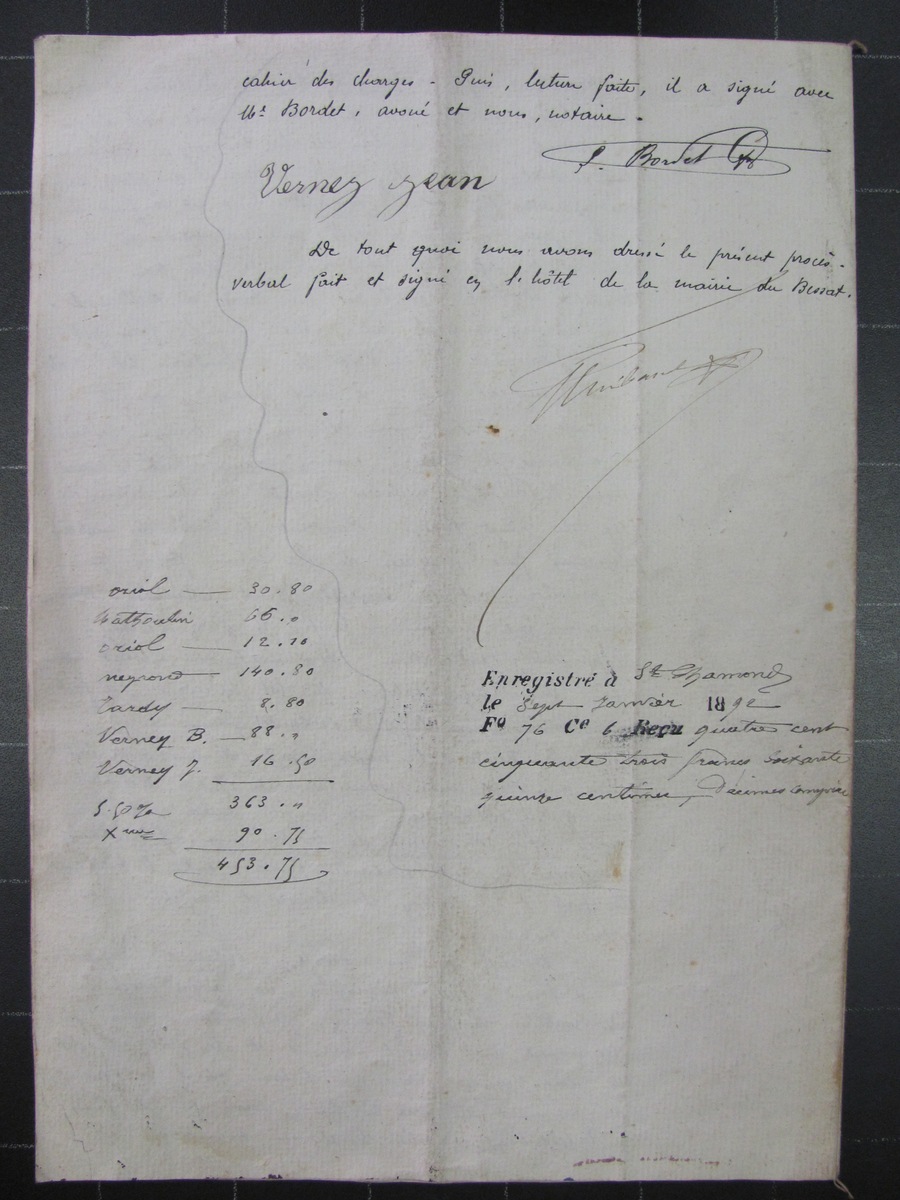 cahier des charges - Puis, lecture faite, il a signé avec
Me Bordet, avoué et nous, notaire.
P. Bordet
Verney Jean
De tout quoi nous avons dressé le présent procès-
verbal fait et signé en l'hôtel de la mairie du Bessat.
oriol — 30.80
Mathoulin 66.„
oriol — 12.10
neyrond 140.80
Tardy — 8.80
Verney B. — 88.„
Verney J. 16.50
5.50 % 363.„
Xmes 90.75
453.75
Enregistré à St Chamond
le Sept Janvier 1892
Fo 76 Ce 6 Reçu quatre cent
cinquante trois francs soixante
quinze centimes, décimes compris